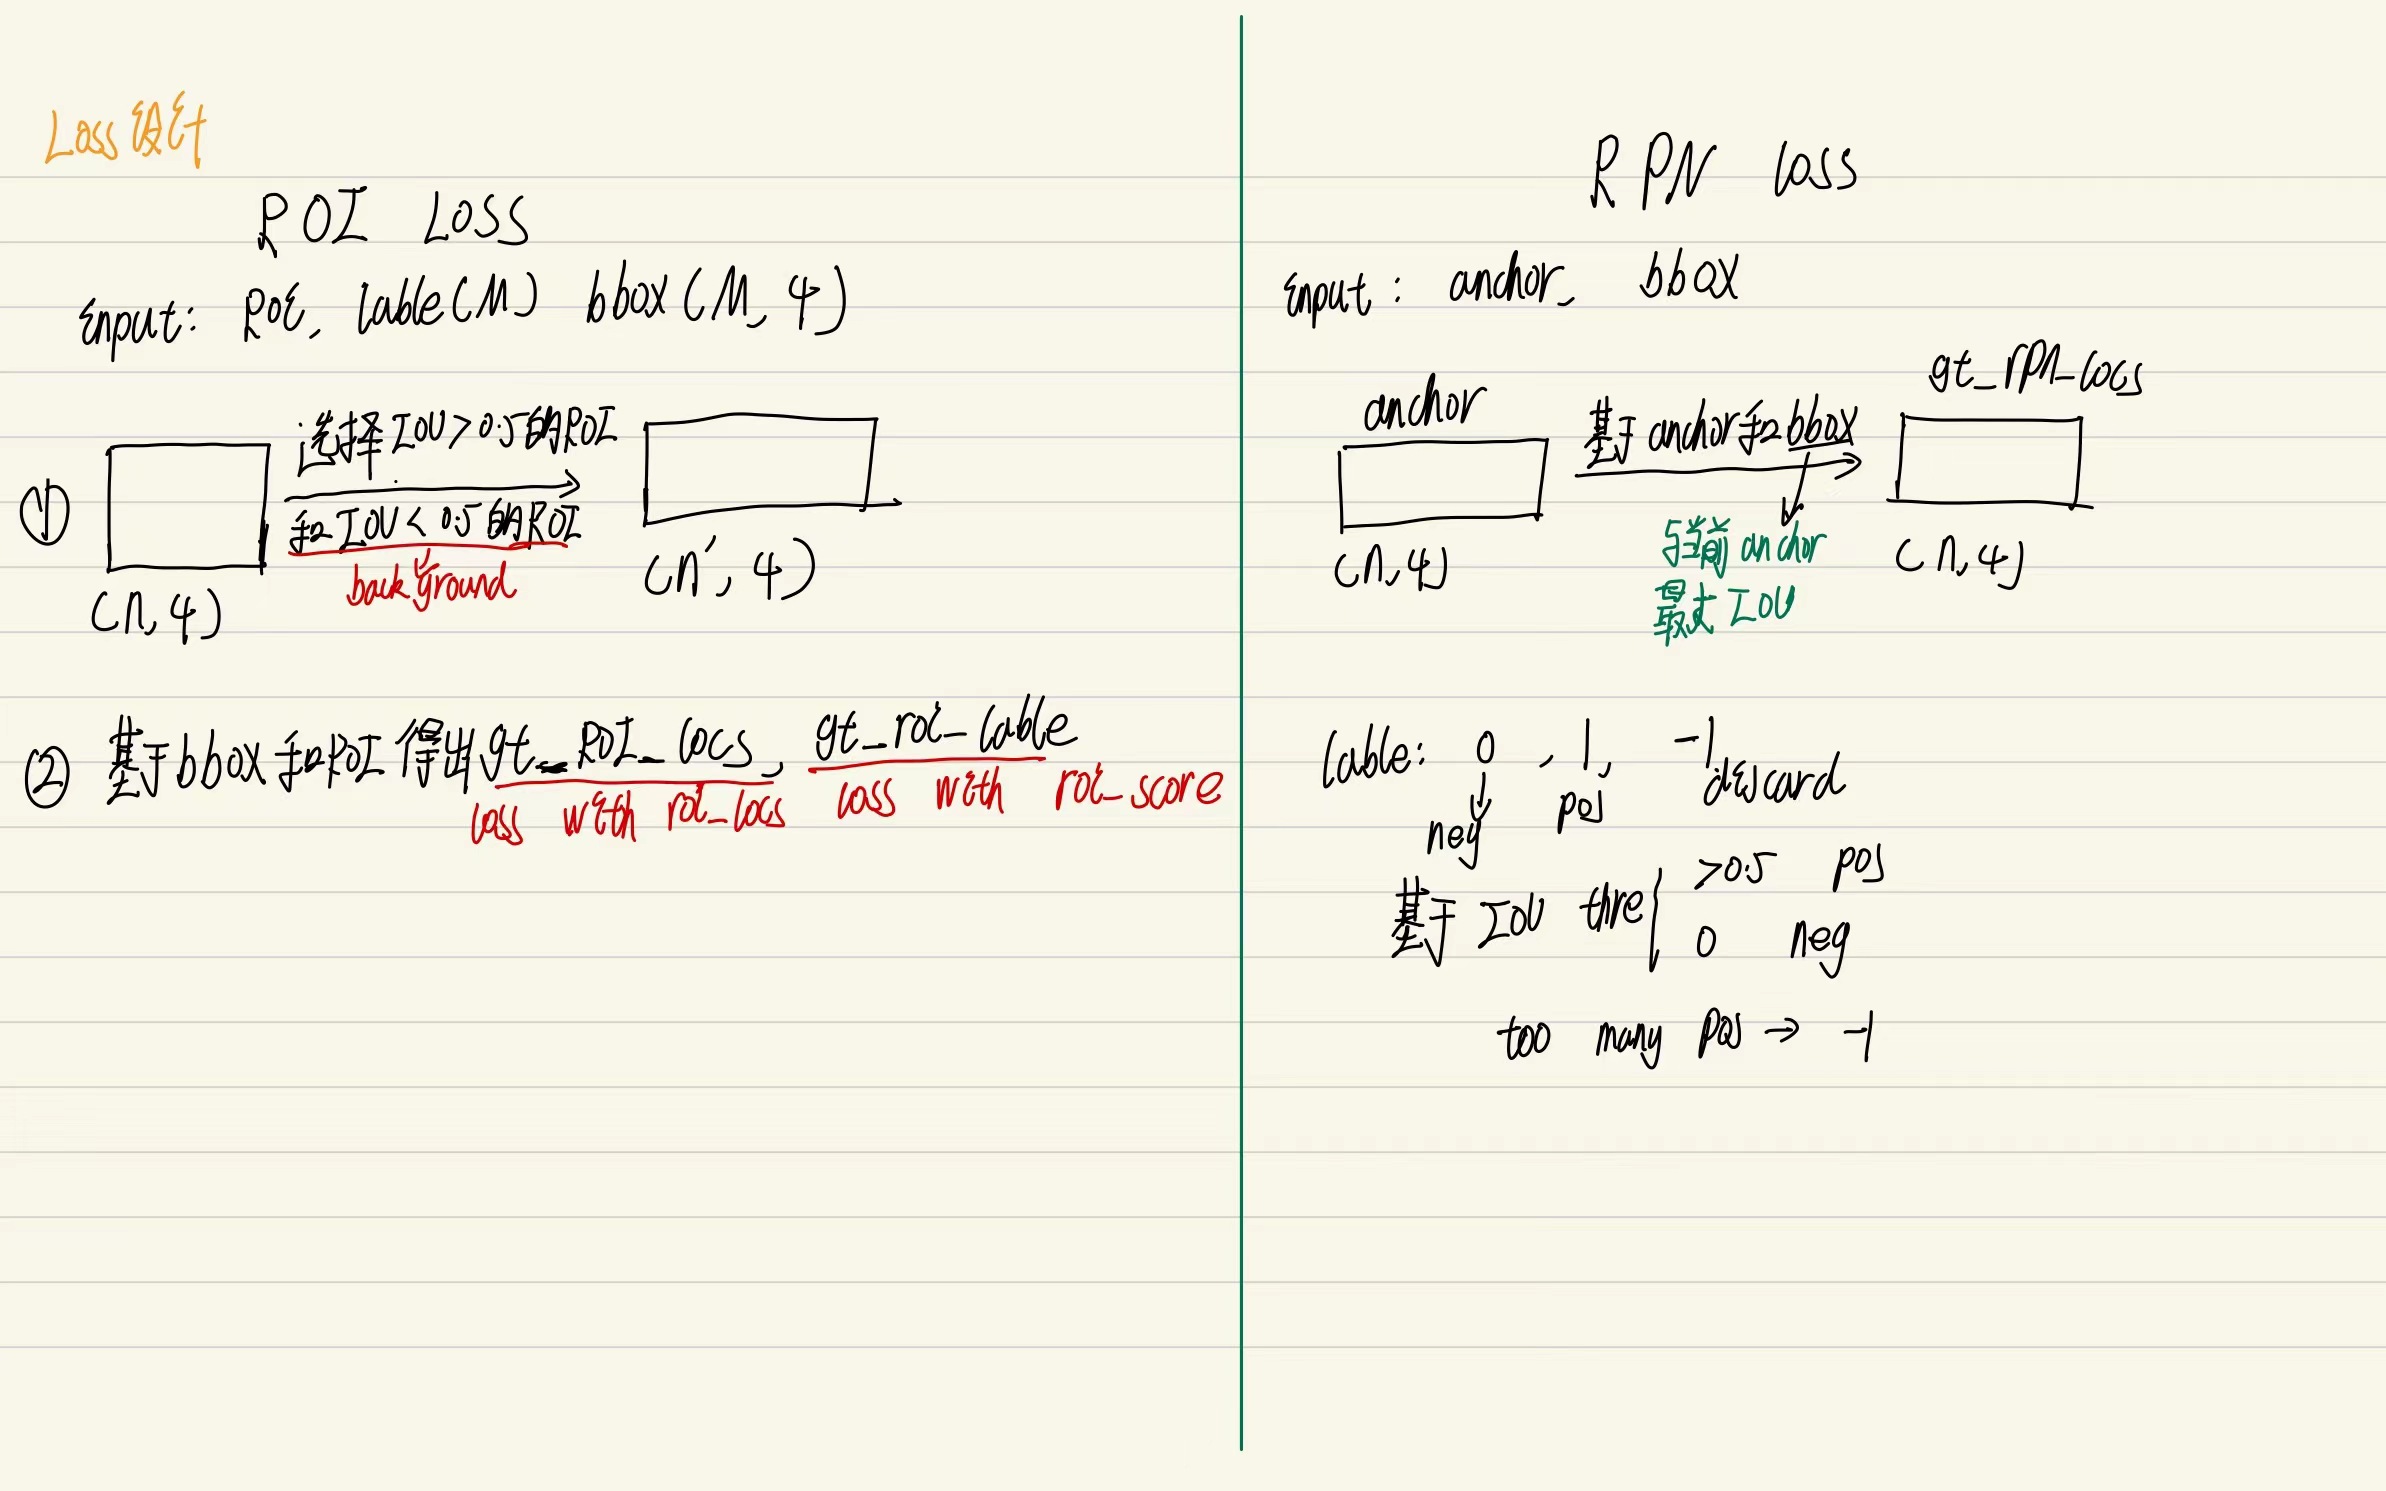 Loss设计
ROI LOSS
input: ROI, lable(M) bbox(M, 4)
① 选择IOU>0.5的ROI
和IOU<0.5的ROI
background
(n, 4)
(n', 4)
② 基于bbox和ROI得出gt_ROI_locs, gt_roi_lable
loss with roi_locs loss with roi_score
RPN loss
input: anchor, bbox
anchor
基于anchor和bbox
gt_rpn_locs
与当前anchor
最大IOU
(n, 4)
(n, 4)
lable: 0, 1, -1
neg pos discard
基于IOU thre { >0.5 pos
0 neg
too many pos → -1